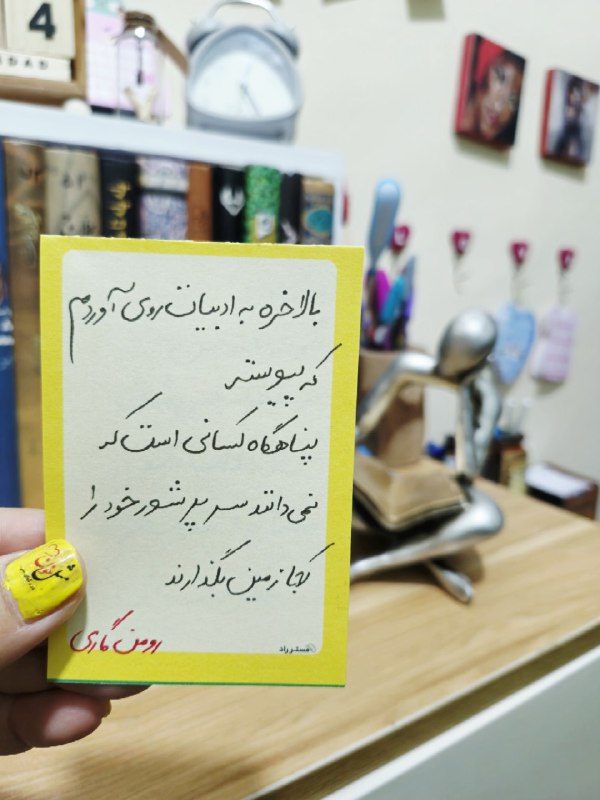 4
بالاخره به ادبیات روی آوردم
که پیوسته
پناهگاه کسانی است که
نمی‌دانند سر پر شور خود را
کجا زمین بگذارند
رومن گاری
مستر راد